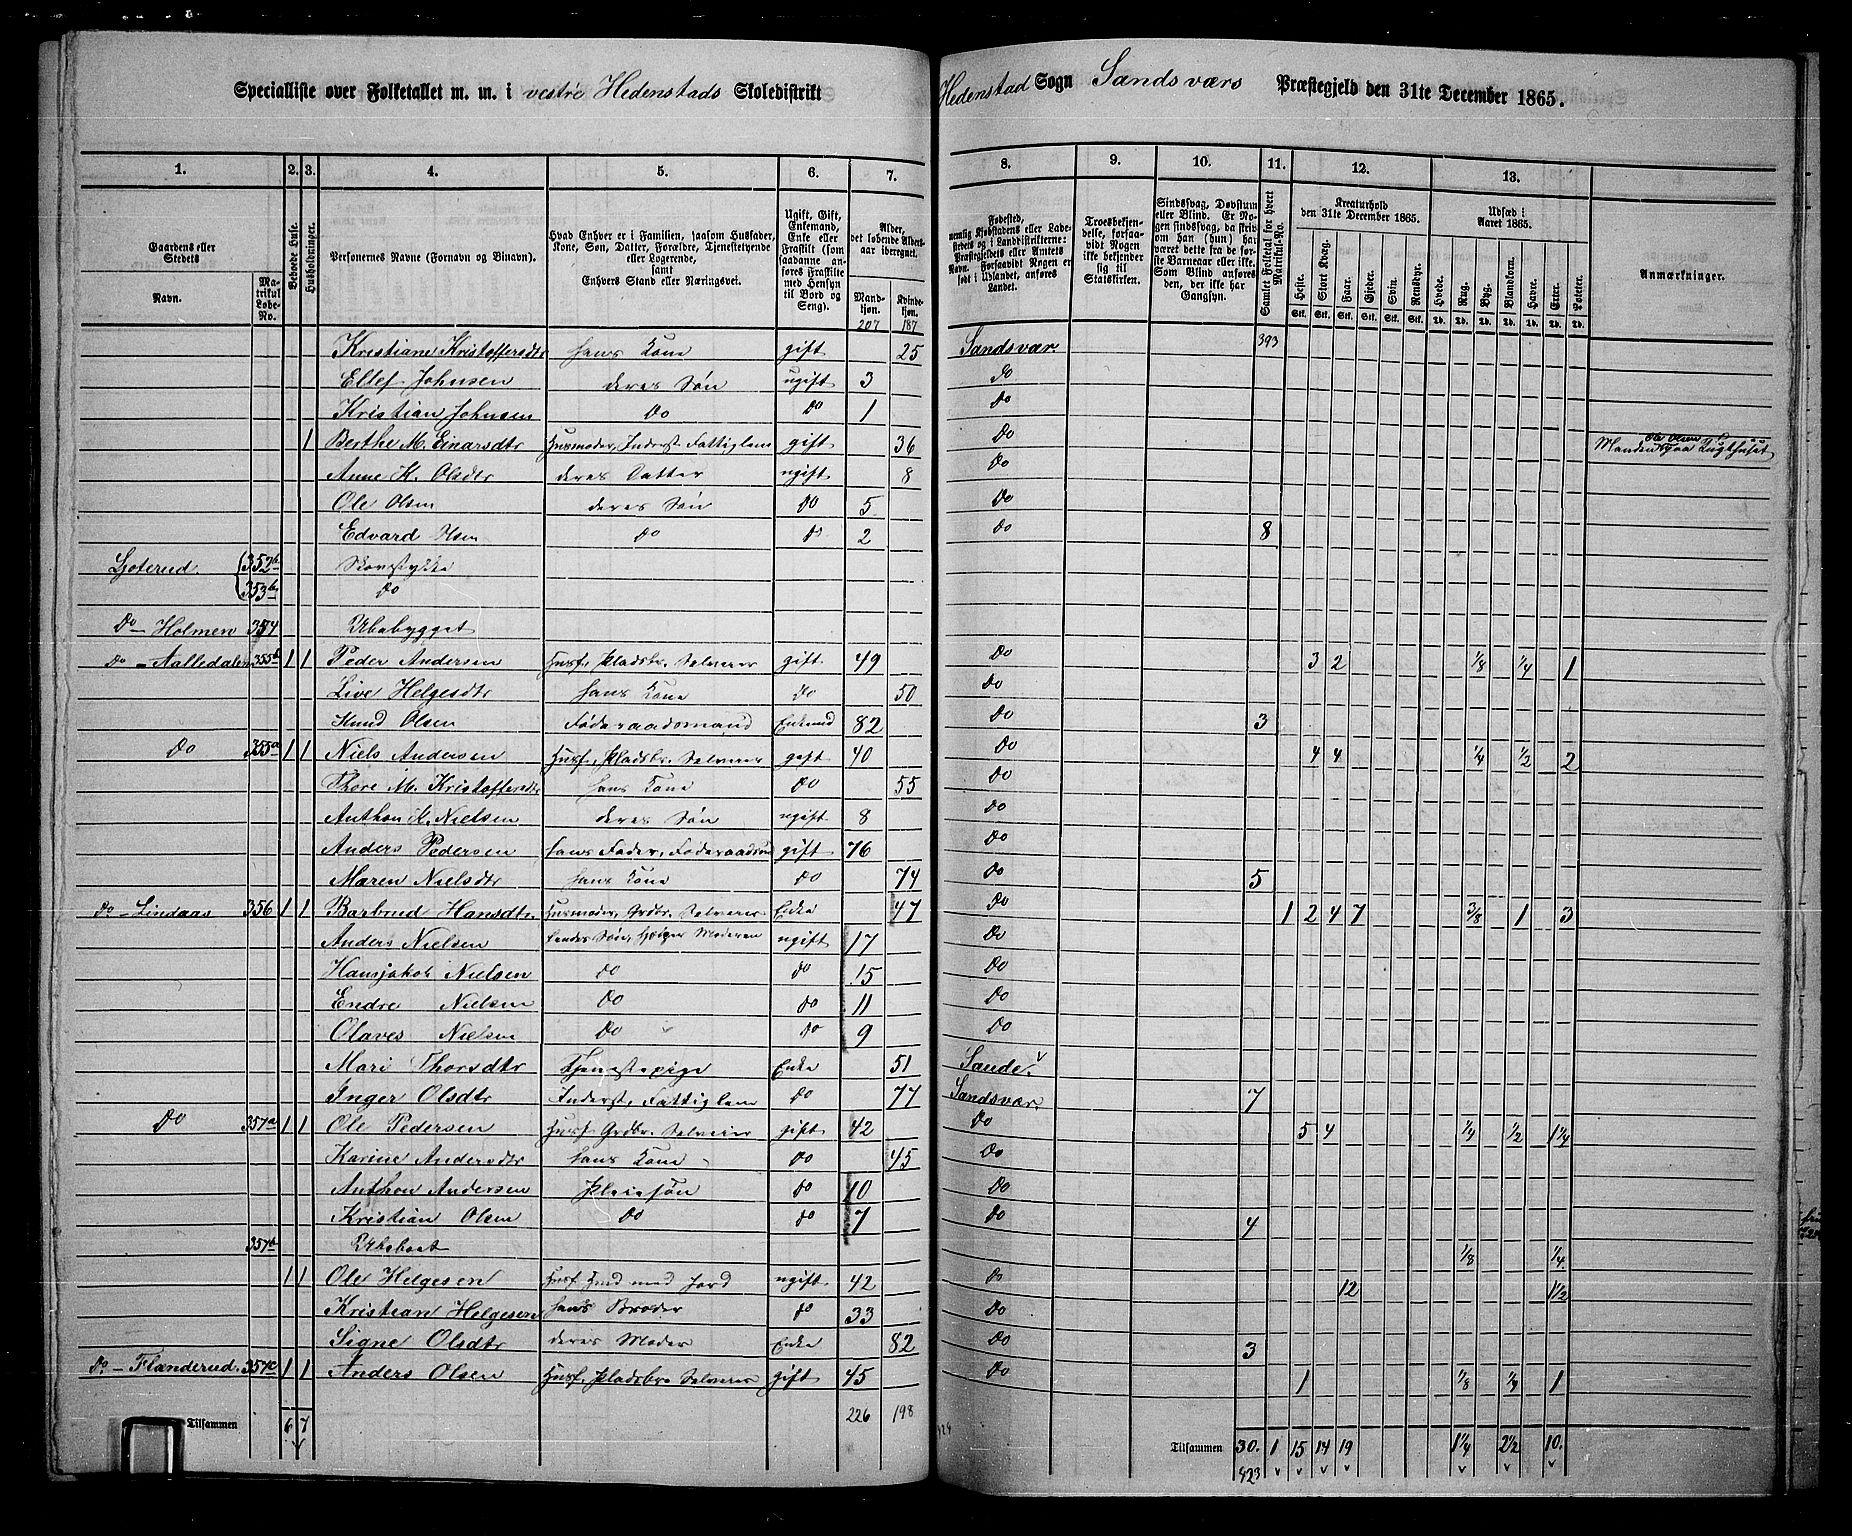 Specialliste over Folketallet m. m. i vestre Hedenstads Skoledistrikt
Hedenstad Sogn Sandsværs Præstegjeld den 31te December 1865.
1. 2. 3. 4. 5. 6. 7. 8. 9. 10. 11. 12. 13.
Gaardens eller Stedets
Navn. Matrikul Løbe-No.
Beboede Huse.
Husholdninger.
Personernes Navne (Fornavn og Binavn).
Hvad Enhver er i Familien, saasom Husfader, Kone, Søn, Datter, Forældre, Tjenestetyende eller Logerende, samt Enhvers Stand eller Næringsvei.
Ugift, Gift, Enkemand, Enke eller Fraskilt (saasom saadanne anføres Fraskilte med Hensyn til Bord og Seng).
Alder, det løbende Aldersaar iberegnet.
Mandkjøn. Kvindekjøn.
207 187
Troesbekjendelse, forsaavidt Nogen ikke bekjender sig til Statskirken.
Samlet Folketal for hvert Matrikul-No.
Kreaturhold den 31te December 1865.
Heste. Stort Kvæg. Faar. Gjeder. Svin. Rensdyr.
Udsæd i Aaret 1865.
Hvede. Rug. Byg. Blandkorn. Havre. Erter. Poteter.
Anmærkninger.
Kristiane Kristoffersdtr hans Kone gift 25 Sandsvær. 393
Ellef Johnsen deres Søn ugift 3 Do
Kristian Johnsen Do Do 1 Do
1 Berthe M. Einarsdtr Husmoder, Inderst Fattiglem gift 36 Do Manden Ole Olsen paa Tugthuset
Anne K. Olsdtr deres Datter ugift 8 Do
Ole Olsen deres Søn Do 5 Do
Edvard Olsen Do Do 2 Do 8
Ljoterud. 352b Skovstykke
353b Do
Do - Holmen 354 Ubebygget
Do - Aalledalen 355b 1 1 Peder Andersen Husf. Pladsbr. Selveier gift 49 Do 3 2 1/8 1/4 1
Live Helgesdtr hans Kone Do 50 Do
Knud Olsen Føderaadsmand Enkemd 82 Do 3
Do 355a 1 1 Niels Andersen Husf. Pladsbr. Selveier gift 40 Do 4 4 1/4 1/2 2
Thore M. Kristoffersdtr hans Kone Do 55 Do
Anthon K. Nielsen deres Søn ugift 8 Do
Anders Pedersen hans Fader, Føderaadsmd gift 76 Do
Maren Nielsdtr hans Kone Do 74 Do 5
Do - Lindaas 356 1 1 Barbrud Hansdtr Husmoder, Grdbr. Selveier Enke 47 Do 1 2 4 7 3/8 1 3
Anders Nielsen hendes Søn, hjelper Moderen ugift 17 Do
Hansjakob Nielsen Do Do 15 Do
Endre Nielsen Do Do 11 Do
Olaves Nielsen Do Do 9 Do
Mari Thorsdtr Tjenestepige Enke 51 Sande.
Inger Olsdtr Inderst, Fattiglem Do 77 Sandsvær. 7
Do 357a 1 1 Ole Pedersen Husf. Grdbr. Selveier gift 42 Do 5 4 1/4 1/2 1 1/4
Karine Andersdtr hans Kone Do 45 Do
Anthon Andersen Pleiesøn Do 10 Do
Kristian Olsen Do Do 7 Do 4
357b Ubeboet 1/8 1/4
1 1 Ole Helgesen Husf. Husmd med Jord ugift 42 Do 12 1 1/2
Kristian Helgesen hans Broder Do 33 Do
Signe Olsdtr deres Moder Enke 82 Do 3
Do - Flanderud. 357c 1 1 Anders Olsen Husf. Pladsbr. Selveier gift 45 Do 1 1/8 1/4 1
Tilsammen 6 7 226 198
Tilsammen 30. 1 15 14 19 1 1/4 2 1/2 10.
423